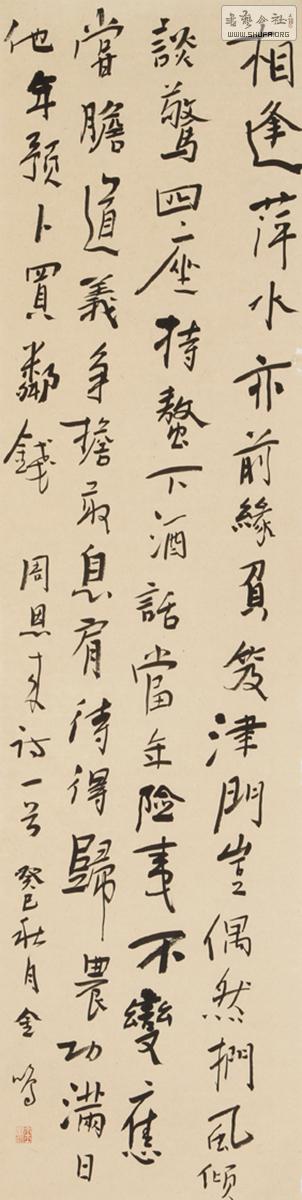 WWW.SHUFA.ORG
相逢萍水亦前緣負笈津門豈偶然捫虱傾
談驚四座持螯下酒話當年險夷不變應
嘗膽道義争擔敢息肩待得歸農功滿日
他年預卜買鄰錢 周恩來詩一首 癸巳秋月金鳴